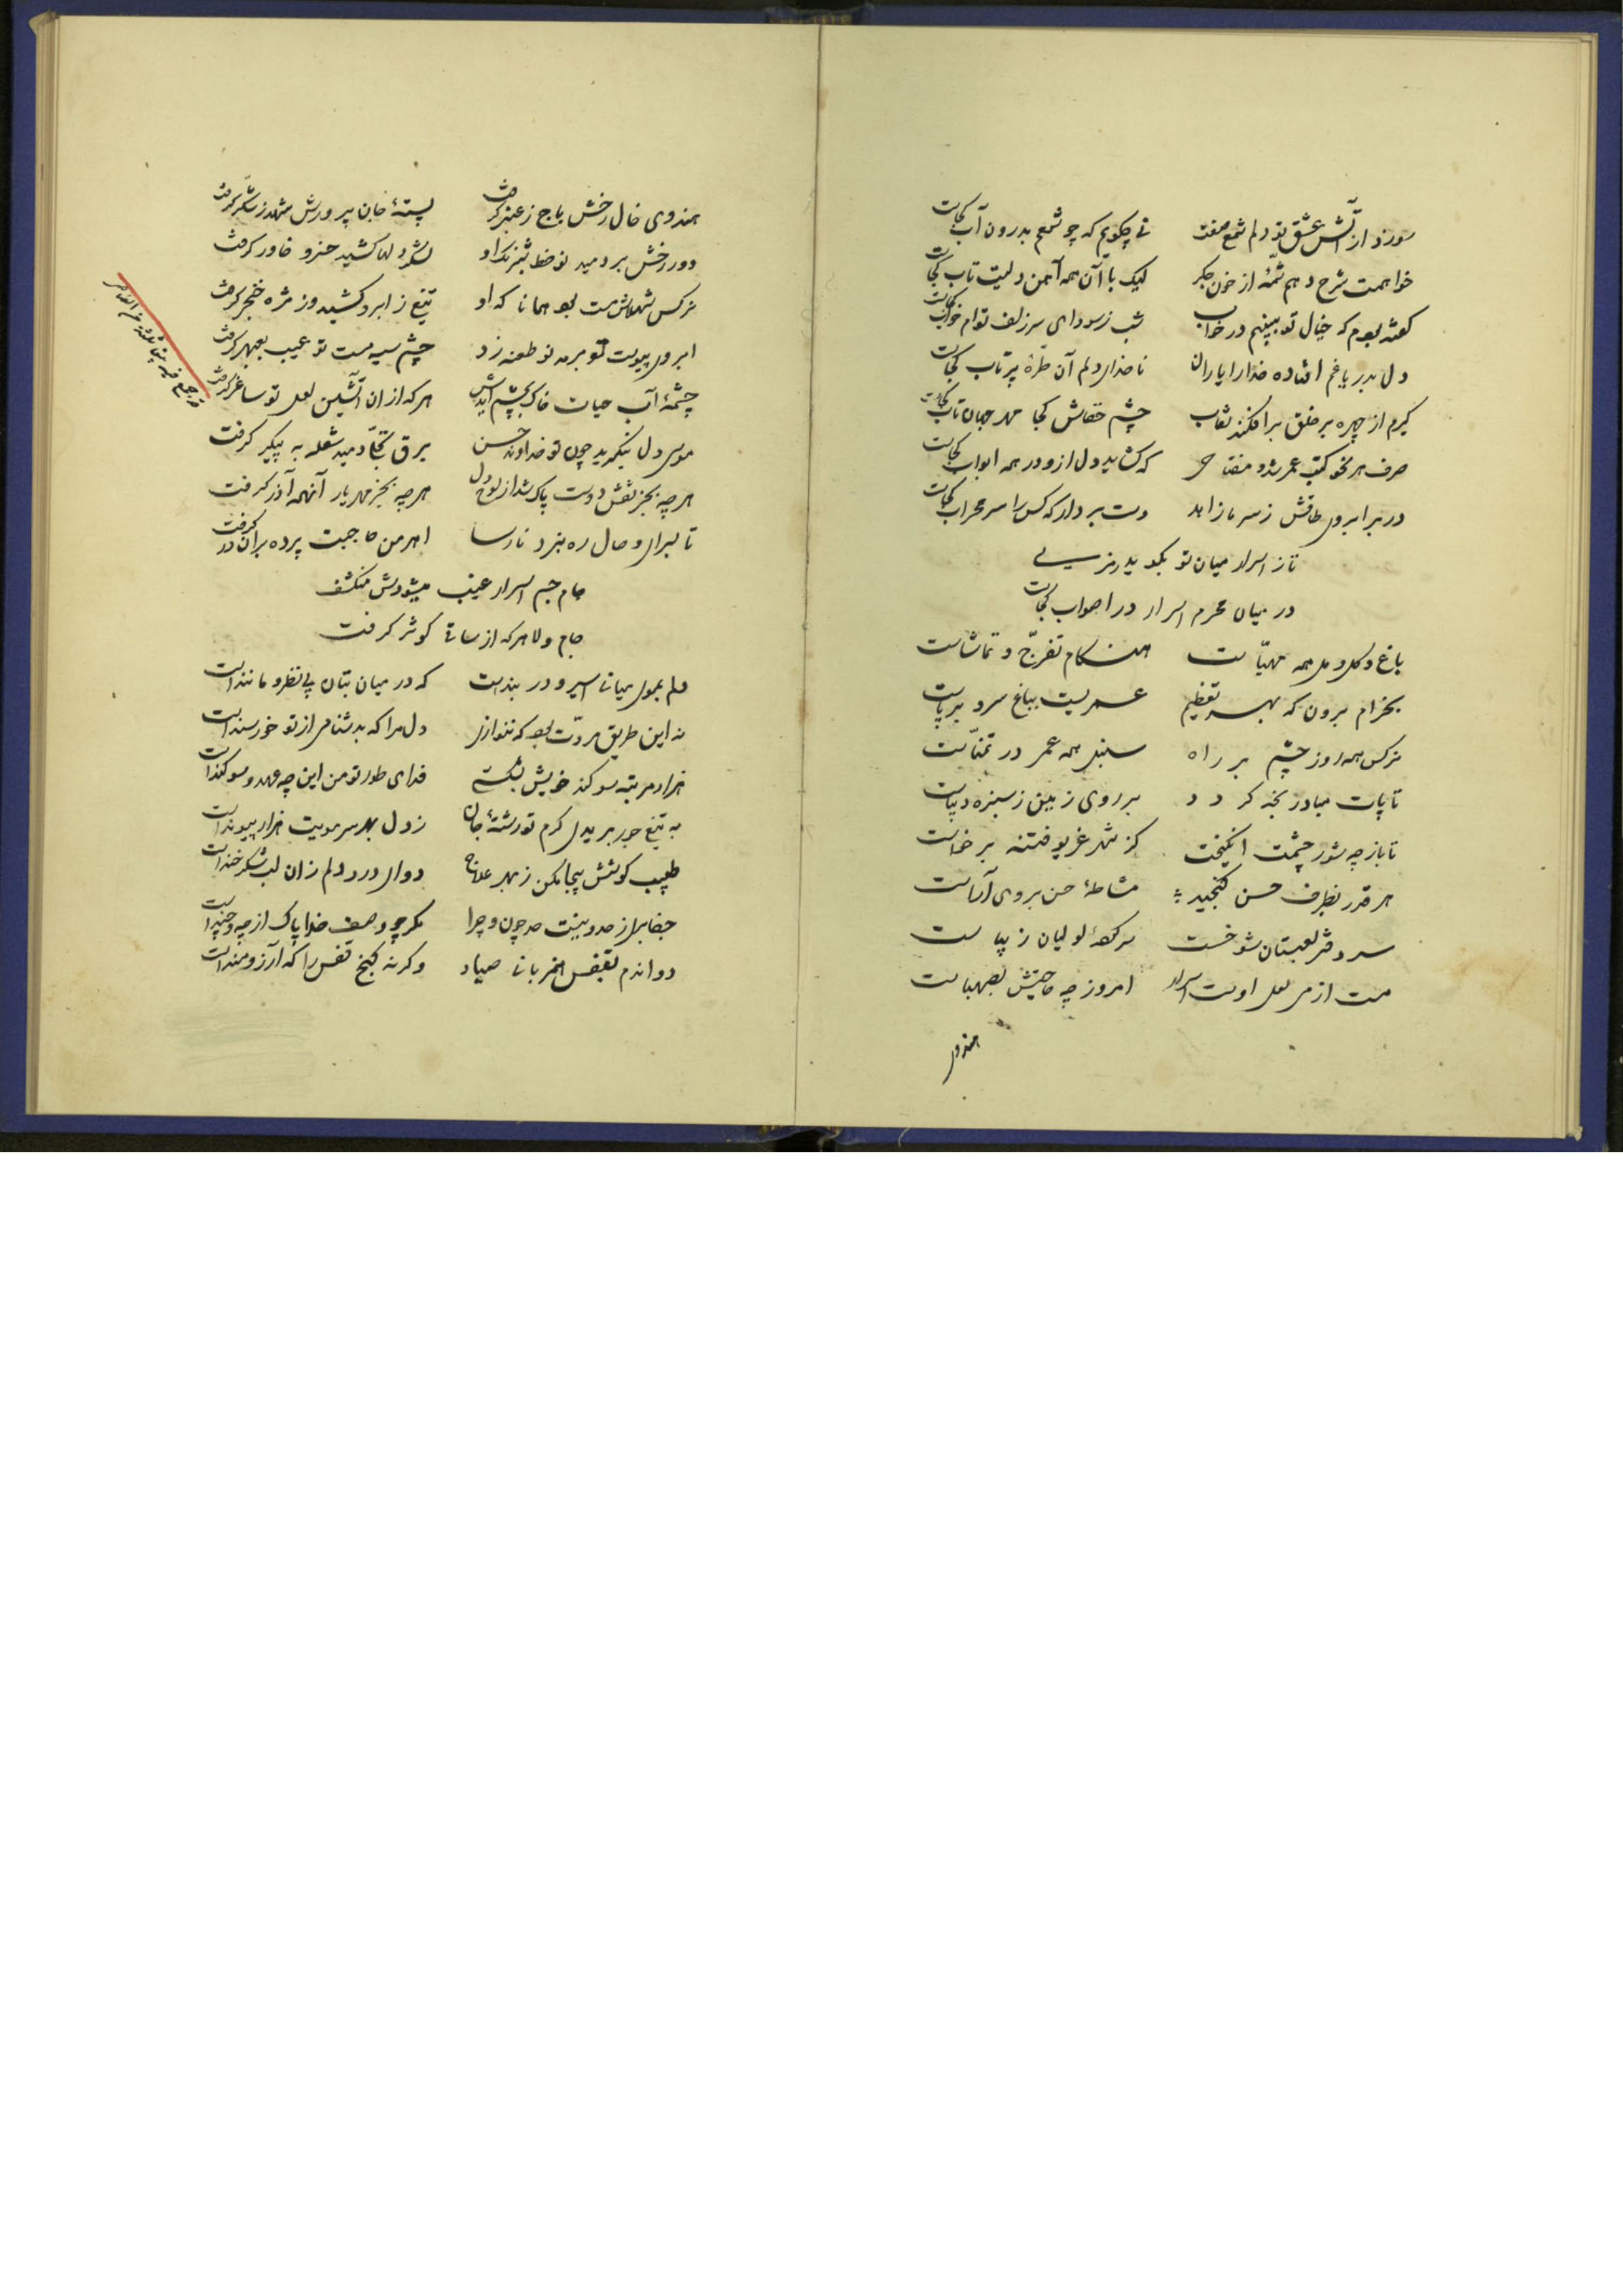 سوزد از آتش عشق تو دلم شمع صفت نی چگویم که چو شمعم بدرون آب کجاست
خواهمت شرح دهم شمّهٔ از خون جگر لیک با آن همه آهن دلیت تاب کجاست
گفته بودم که خیال تو ببینم در خواب شب ز سودای سر زلف توام خواب کجاست
دل بدریا غم افتاده خدا را یاران ناخدای دلم آن طرّهٔ پرتاب کجاست
گیرم از چهره بر خلق برافکند نقاب چشم خفاش کجا مهر جهان تاب کجاست
صرف هر نحو کتب عمر شد و مفتاحی که گشاید دل ازو در همه ابواب کجاست
در بر ابروی طاقش ز سر ما زاهد دست بردار که کس را سر محراب کجاست
تا ز اسرار میان تو بگوید رمزی
در میان محرم اسرار در اصواب کجاست
باغ و گل و مل همه مهیّاست هنگام تفرّج و تماشاست
بخرام برون که بهر تعظیم عمریست بباغ سرو برپاست
نرکس همه روز چشم بر راه سنبل همه عمر در تمنّاست
تا پات مباد رنجه گردد بر روی زمین ز سبزه دیباست
تا باز چه شور چشمت انگیخت کز شهر غریو فتنه برخاست
هر قدر بظرف حسن گنجید مشاطهٔ حسن بروی آراست
سر دفتر لعبتان شوخست سر کردهٔ لولیان زیباست
مست از می لعل اوست اسرار امروز چه حاجتش بصهباست
هندوی
هندوی خال رخش باج ز عنبر گرفت پستهٔ جان پرورش شهد ز شکّر گرفت
دور رخش بردمید نو خط شبرنگ او لشکر دلها کشید خسرو خاور گرفت
نرکس شهلاش مست بود همانا که او تیغ ز ابرو کشید وز مژه خنجر گرفت
ابروی پیوست تو بر مه نو طعنه زد چشم سیه مست تو عیب بعبهر گرفت
چشمهٔ آب حیات خاک بچشم آیدش هر که از ان آتشین لعل تو ساغر گرفت
موسی دل بنگرید چون تو خداوند حسن برق تجلّا دمید شعله به پیکر گرفت
هر چه بجز نقش دوست پاک شد از لوح دل هر چه بجز مهر یار آنهمه آذر گرفت
تا بسرای وصال ره نبرد نارسا اهرمن حاجبت پرده بران در گرفت
جام جم اسرار غیب میشودش منکشف
جام ولا هر که از ساقی کوثر گرفت
دلم بموی میانی اسیر و در بندست که در میان بتان بی نظیر و مانند است
نه این طریق مروّت بود که ننوازی دل مرا که بدشنامی از تو خورسند است
هزار مرتبه سوگند خویش بشکستی فدای طور تو من این چه عهد و سوگند است
به تیغ جور بریدی گرم تو رشتهٔ جان ز دل بهر سر مویت هزار پیوند است
طبیب کوشش بیجا مکن ز بهر علاج دوای درد دلم زان لب شکرخند است
جفای را ز حد و نیست حد چون و چرا مگر چو وصف خدا پاک از چه و چند است
دو اندم بقفس مهربانی صیاد وگرنه کنج قفس را که آرزومند است